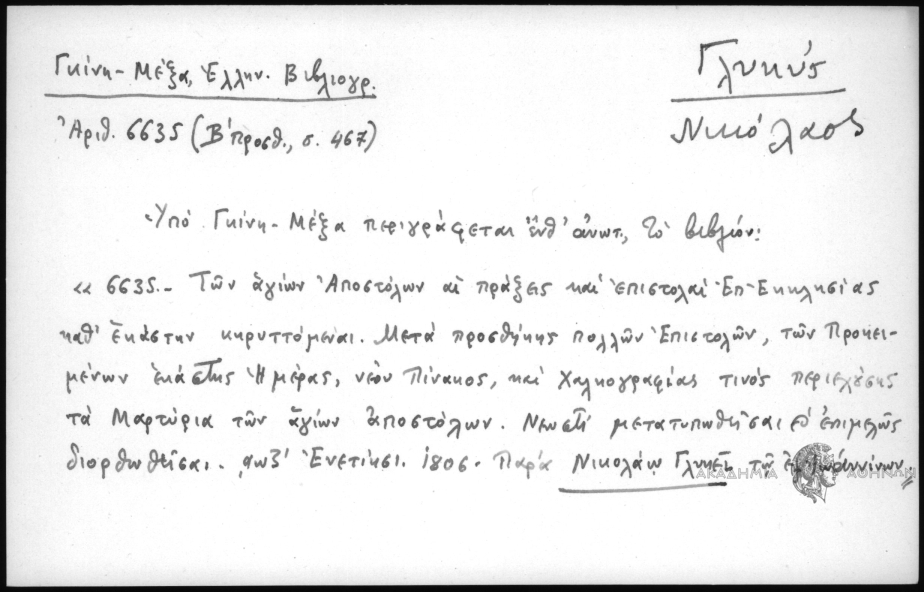 Γκίνη - Μέξα, Ἑλλην. Βιβλιογρ.
Γλυκύς
Ἀριθ. 6635 (Β' προσθ., σ. 467)
Νικόλαος
Ὑπό Γκίνη - Μέξα περιγράφεται ἔνθ' ἀνωτ., τό βιβλίον:
« 6635.- Τῶν ἁγίων Ἀποστόλων αἱ πράξεις καί ἐπιστολαί Ἐπ-Ἐκκλησίας
καθ' ἑκάστην κηρυττόμεναι. Μετά προσθήκης πολλῶν Ἐπιστολῶν, τῶν Προκει-
μένων ἑκάστης Ἡμέρας, νέου Πίνακος, καί Χαλκογραφίας τινός περιεχούσης
τά Μαρτύρια τῶν ἁγίων ἀποστόλων. Νεωστί μετατυπωθεῖσαι καί ἐπιμελῶς
διορθωθεῖσαι. ͵αωϛ' Ἐνετίῃσι. 1806. Παρά Νικολάῳ Γλυκεῖ τῷ ἐξ Ἰωαννίνων »
ΑΚΑΔΗΜΙΑ ΑΘΗΝΩΝ